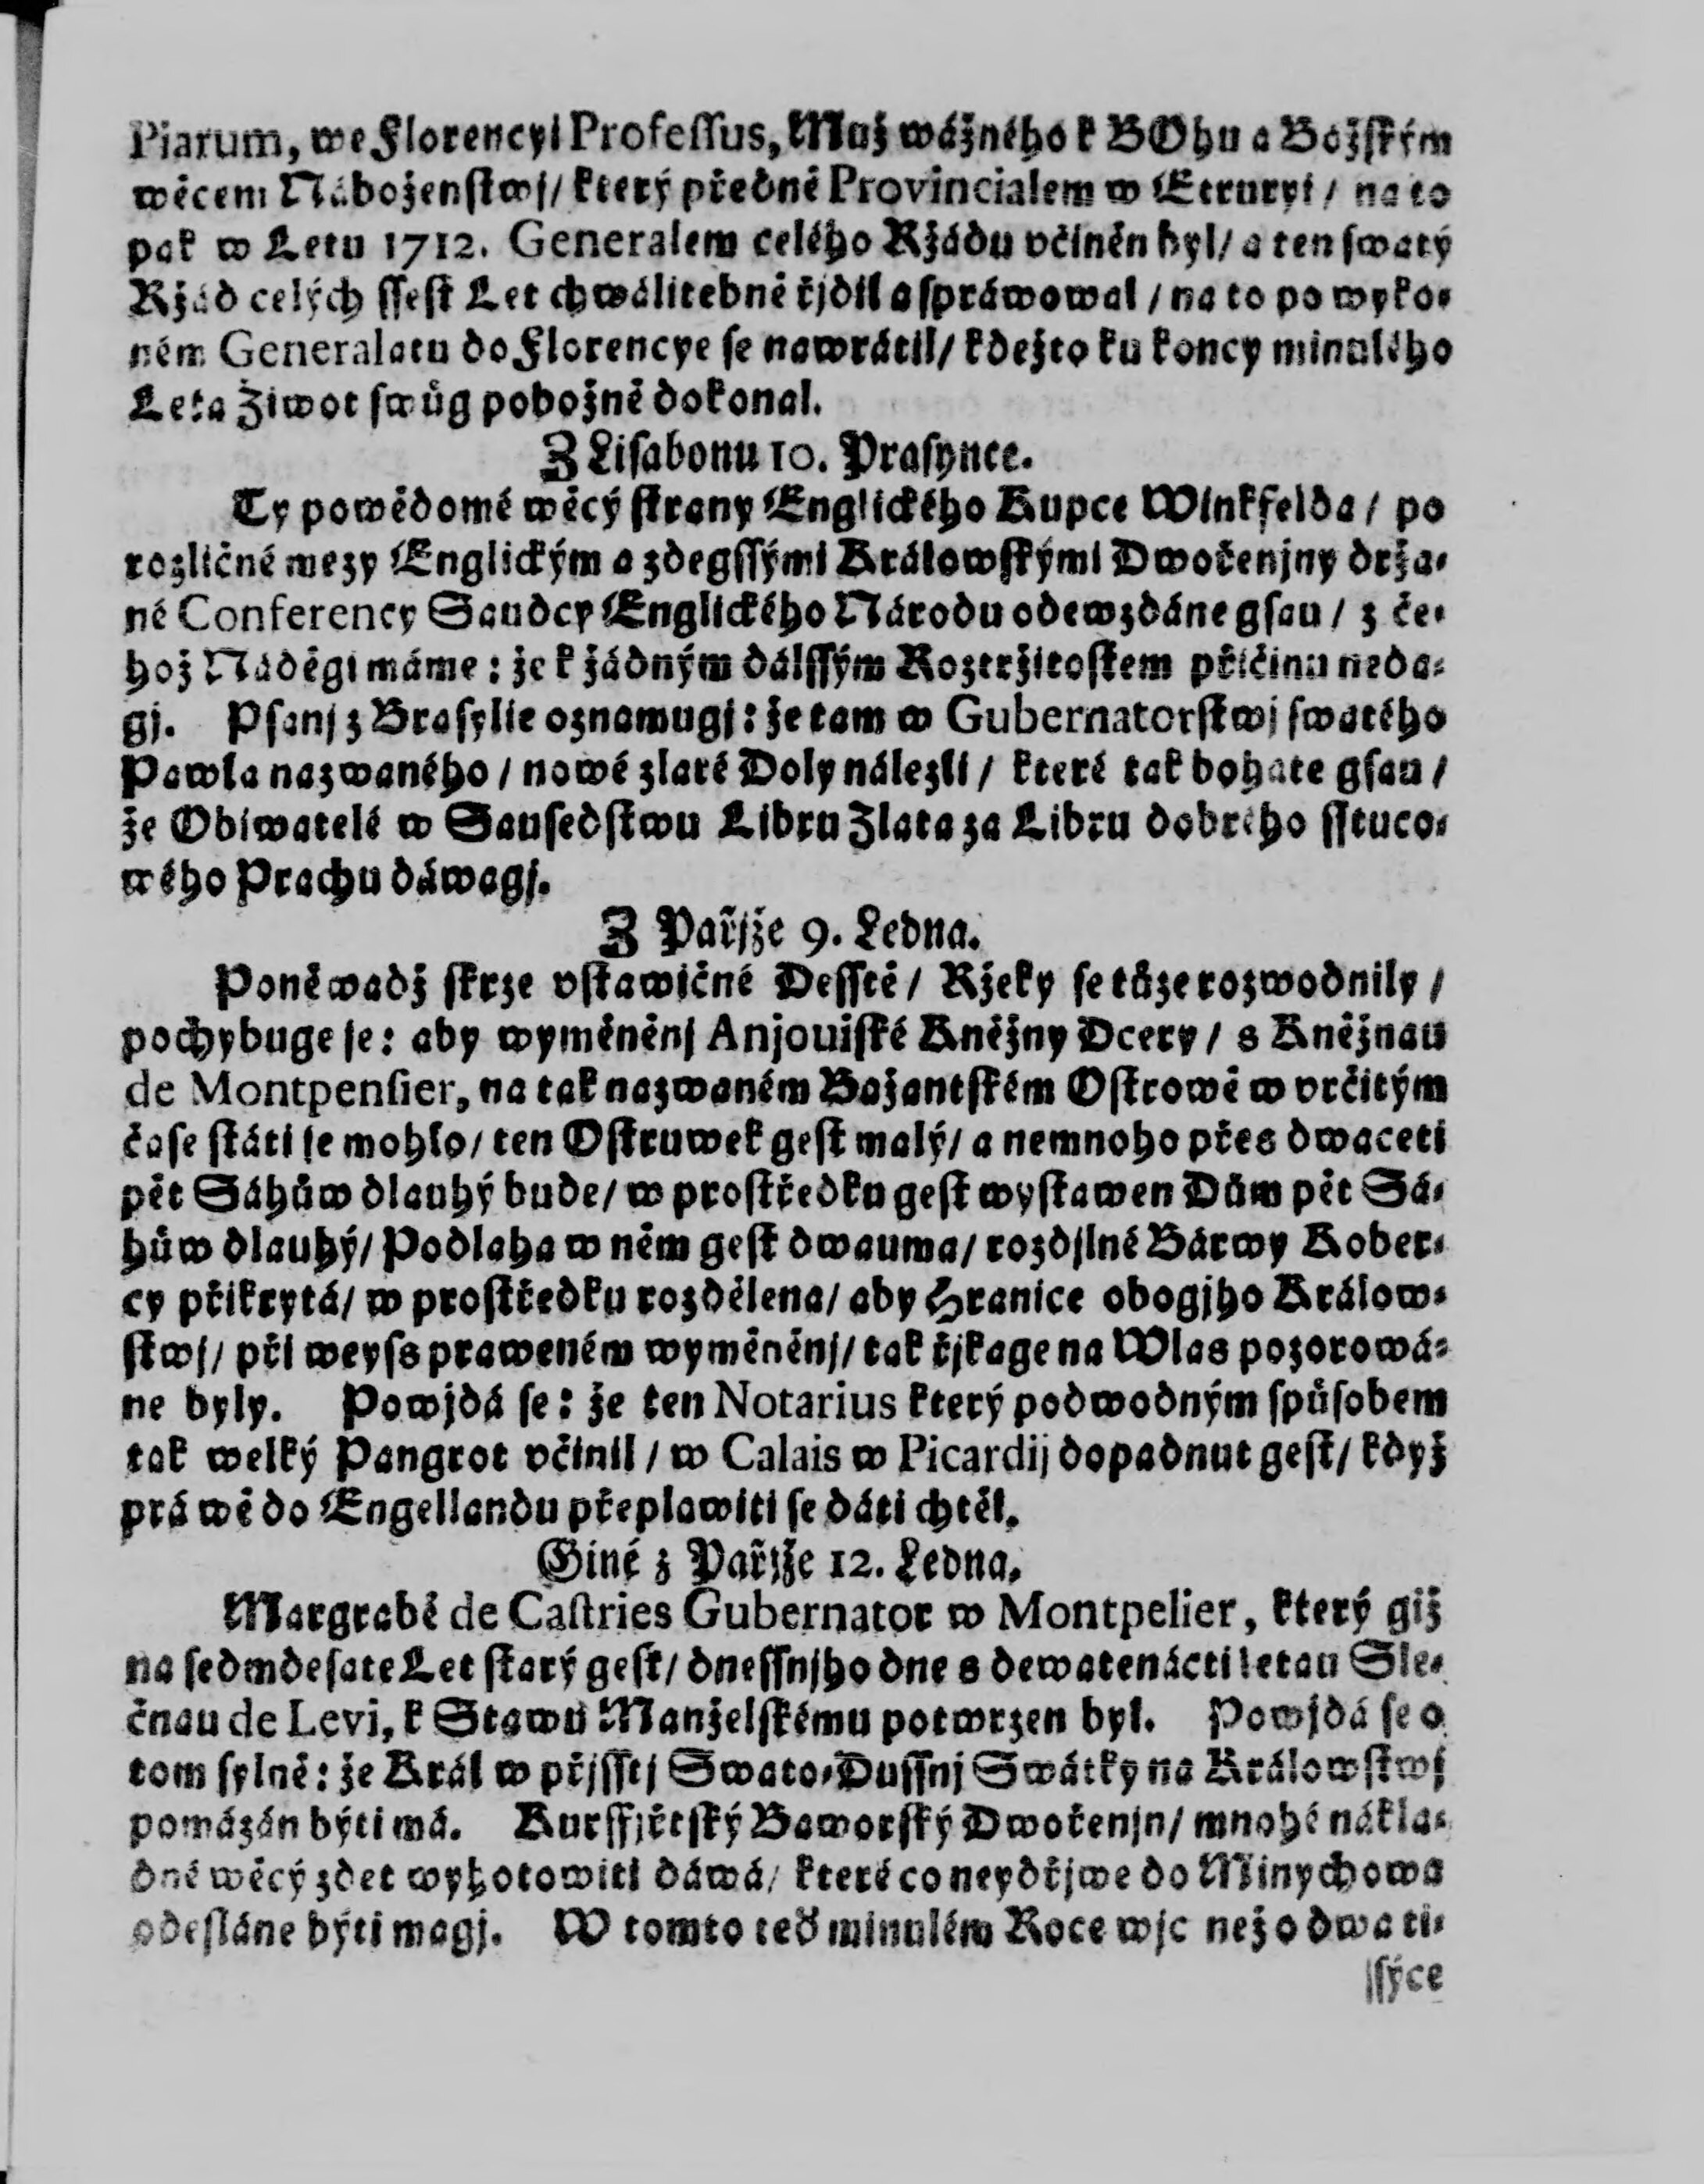 Piarum, we Florencyi Profeſſus, Muž wážného k BOhu a Božſkým
wěcem Náboženſtwj/ který předně Provincialem w Etruryi / na to
pak w Letu 1712. Generalem celého Ržádu včiněn byl/ a ten ſwatý
Ržád celých ſſeſt Let chwálitebně řjdil a ſpráwowal / na to po wyko⸗
ném Generalatu do Florencye ſe nawrátil/ kdežto ku koncy minulého
Leta Žiwot ſwůg pobožně dokonal.
Z Liſabonu 10. Praſynce.
Ty powědomé wěcý ſtrany Englického Kupce Winkfelda / po
rozličné mezy Englickým a zdegſſými Králowſkými Dwořenjny drža⸗
né Conferency Saudcy Englického Národu odewzdáne gſau / z če⸗
hož Náděgi máme : že k žádným dálſſým Roztržitoſtem přičinu neda⸗
gj. Pſanj z Braſylie oznamugj : že tam w Gubernatorſtwj ſwatého
Pawla nazwaného / nowé zlaté Doly nálezli / které tak bohate gſau /
že Obiwatelé w Sauſedſtwu Libru Zlata za Libru dobrého ſſtuco⸗
wého Prachu dáwagj.
Z Pařjže 9. Ledna.
Poněwadž ſkrze vſtawičné Deſſtě / Ržeky ſe túze rozwodnily /
pochybuge ſe : aby wyměněnj Anjouiſké Kněžny Dcery / s Kněžnau
de Montpenſier, na tak nazwaném Bažantſkém Oſtrowě w vrčitým
čaſe ſtáti ſe mohlo/ ten Oſtruwek geſt malý/ a nemnoho přes dwaceti
pět Sáhůw dlauhý bude/ w proſtředku geſt wyſtawen Dům pět Sá⸗
hůw dlauhý/ Podlaha w něm geſt dwauma/ rozdjlné Bárwy Kober⸗
cy přikrytá/ w proſtředku rozdělena/ aby Hranice obogjho Králow⸗
ſtwj/ při weyſs praweném wyměněnj/ tak řjkage na Wlas pozorowá⸗
ne byly. Powjdá ſe : že ten Notarius který podwodným ſpůſobem
tak welký Pangrot včinil / w Calais w Picardij dopadnut geſt/ když
práwě do Engellandu přeplawiti ſe dáti chtěl.
Giné z Pařjže 12. Ledna.
Margrabě de Caſtries Gubernator w Montpelier, který giž
na ſedmdeſate Let ſtarý geſt/ dneſſnjho dne s dewatenácti letau Sle⸗
čnau de Levi, k Stawu Manželſkému potwrzen byl. Powjdá ſe o
tom ſylně : že Král w přjſſtj Swato⸗Duſſnj Swátky na Králowſtwj
pomázán býti má. Kurffiřtſký Baworſký Dwořenjn/ mnohé nákla⸗
dné wěcý zdet wyhotowiti dáwá/ které co neydřjwe do Minychowa
odeſláne býti magj. W tomto teď minulém Roce wjc nežo dwa ti⸗
ſýce